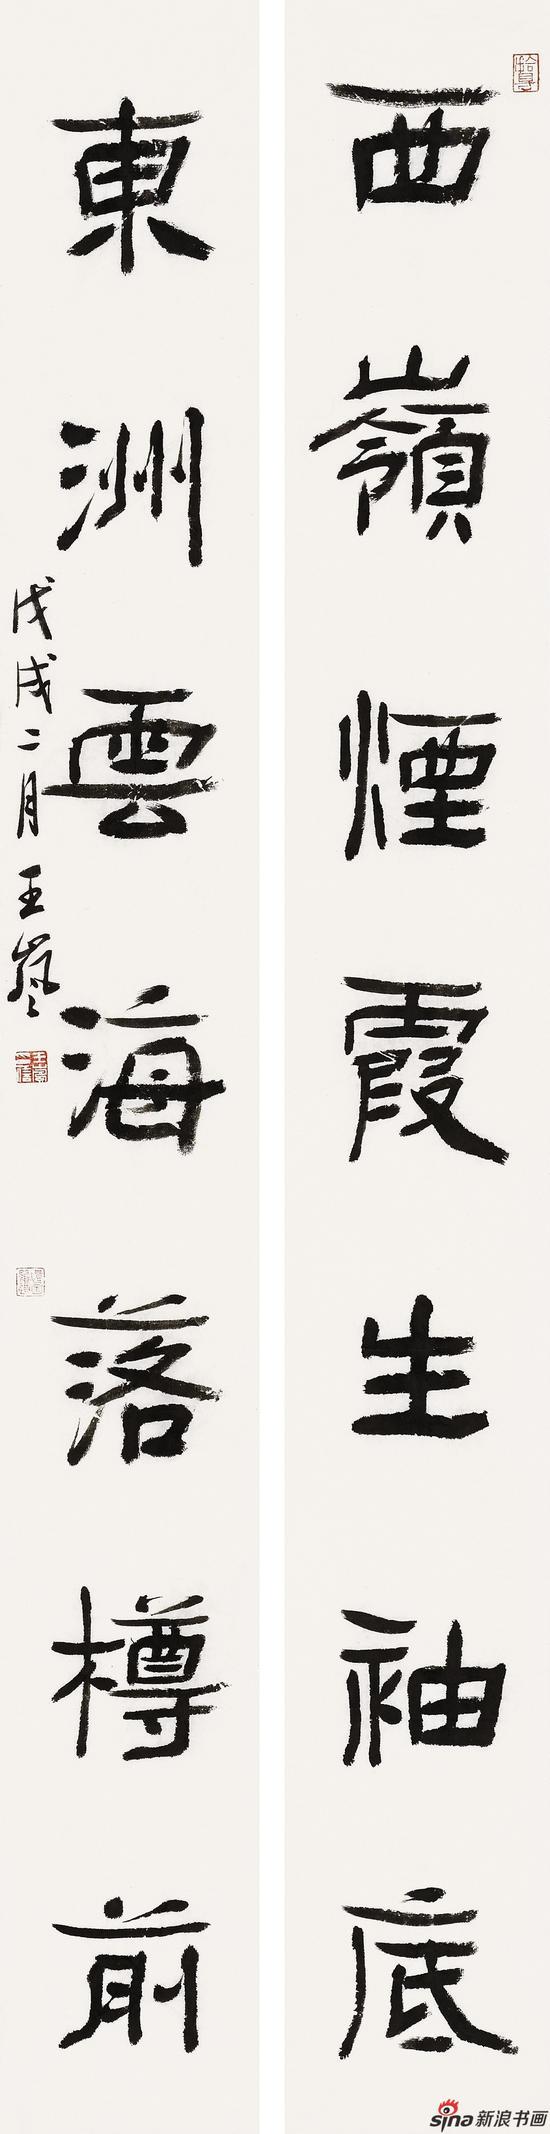 西嶺煙霞生袖底
東洲雲海落樽前
戊戌二月王嵐
sina新浪书画